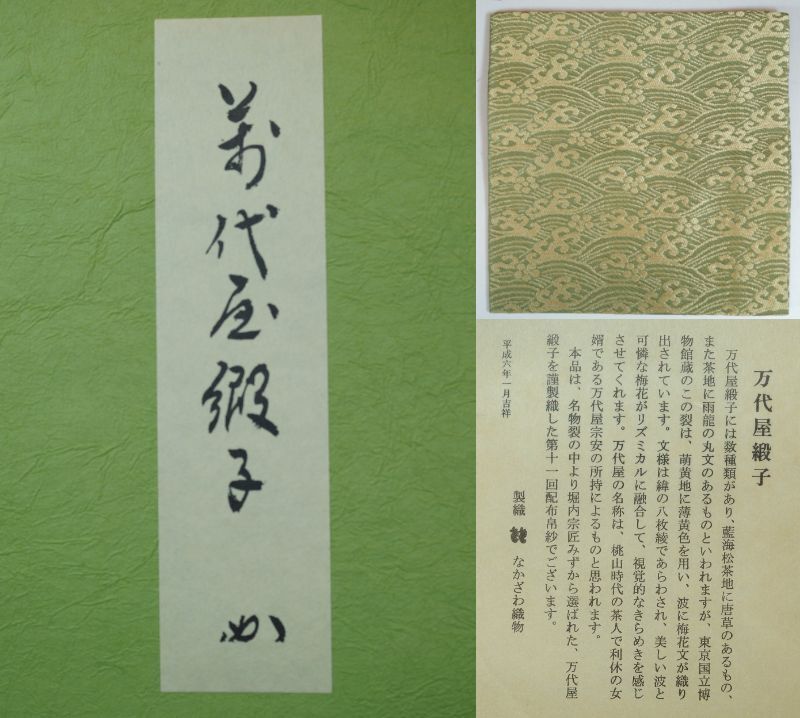 萬代屋緞子
万代屋緞子
万代屋緞子には数種類があり、藍海松茶地に唐草のあるもの、
また茶地に雨龍の丸文のあるものといわれますが、東京国立博
物館蔵のこの裂は、萌黄地に薄黄色を用い、波に梅花文が織り
出されています。文様は緯の八枚綾であらわされ、美しい波と
可憐な梅花がリズミカルに融合して、視覚的なきらめきを感じ
させてくれます。万代屋の名称は、桃山時代の茶人で利休の女
婿である万代屋宗安の所持によるものと思われます。
本品は、名物裂の中より堀内宗匠みずから選ばれた、万代屋
緞子を謹製織した第十一回配布帛紗でございます。
平成六年一月吉祥
製織 なかざわ織物